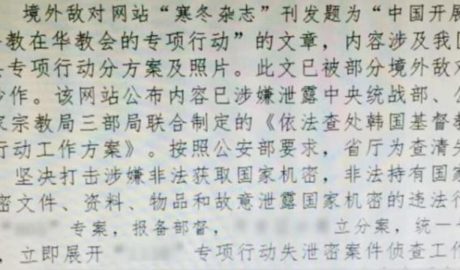 境外敌对网站“寒冬杂志”刊发题为“中国开展
教在华教会的专项行动”的文章，内容涉及我国
专项行动分方案及照片。此文已被部分境外敌对
作。该网站公布内容已涉嫌泄露中央统战部、公
家宗教局三部局联合制定的《依法查处韩国基督教
行动工作方案》。按照公安部要求，省厅为查清失
坚决打击涉嫌非法获取国家机密，非法持有国家
密文件、资料、物品和故意泄露国家机密的违法行
专案，报备部督， 立分案，统一
，立即展开 专项行动失泄密案件侦查工作